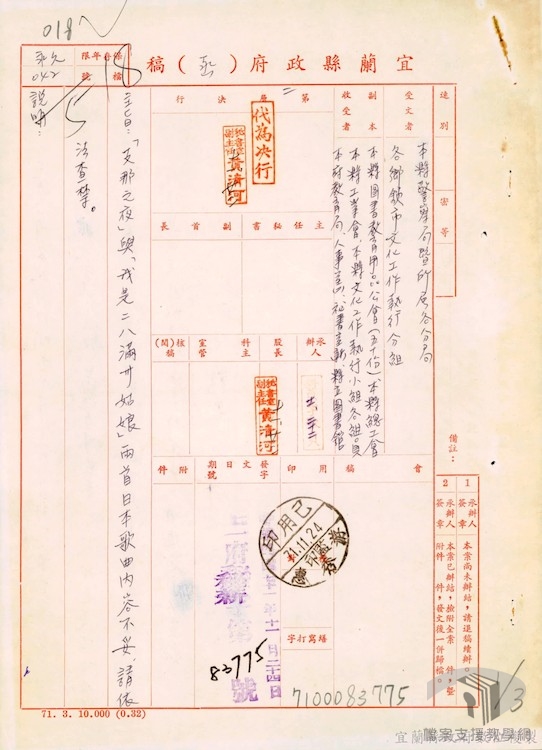 018
宜蘭縣政府（函）稿
檔號
保存年限
042
速別
密等
受文者
本縣警察局暨所屬各分局
各鄉鎮市文化工作執行分組
副本收受者
本縣圖書教育用品公會（五十份）本縣總工會
本縣工業會、本縣文化工作執行小組各組員
本府教育局、人事室、秘書室新、縣立圖書館
備註：
1 承辦人簽章 本案尚未辦結，請退稿續辦。
2 承辦人簽章 本案已辦結，檢附全案 件，暨附件 件，發文後一併歸檔。
第二層決行
代為決行
秘書室副主任 黃清河
主任秘書
副首長
承辦人
股長
科室主管
核稿(閱)
秘書室副主任 黃清河
會稿
用印
發文日期字號
附件
已用印
71.11.24
繕寫打字
十一月二十四日
號
83775
7100083775
主旨：「支那之夜」與「我是二八滿州姑娘」兩首日本歌曲內容不妥，請依
法查禁。
說明：
71. 3. 10.000 (0.32)
1/3
檔案支援教學網